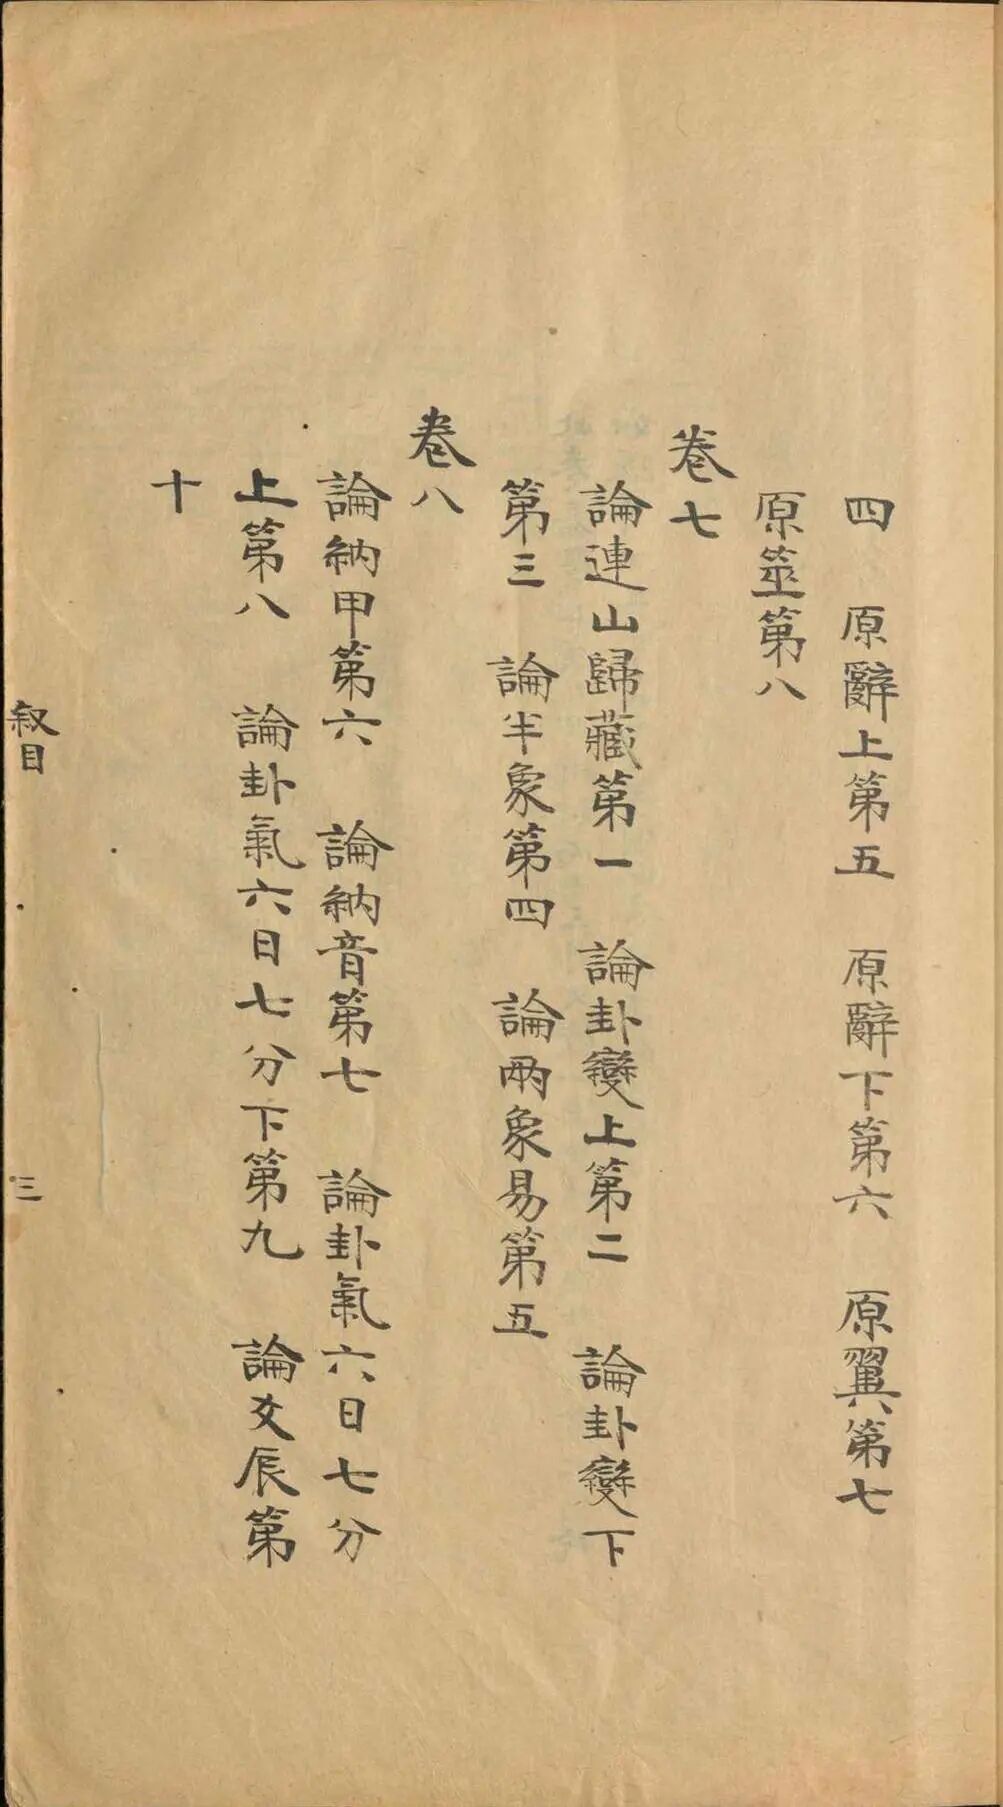 四　原辭上第五　原辭下第六　原翼第七
原筮第八
卷七
論連山歸藏第一　論卦變上第二　論卦變下
第三　論半象第四　論兩象易第五
卷八
論納甲第六　論納音第七　論卦氣六日七分
上第八　論卦氣六日七分下第九　論爻辰第
十
叙目
三